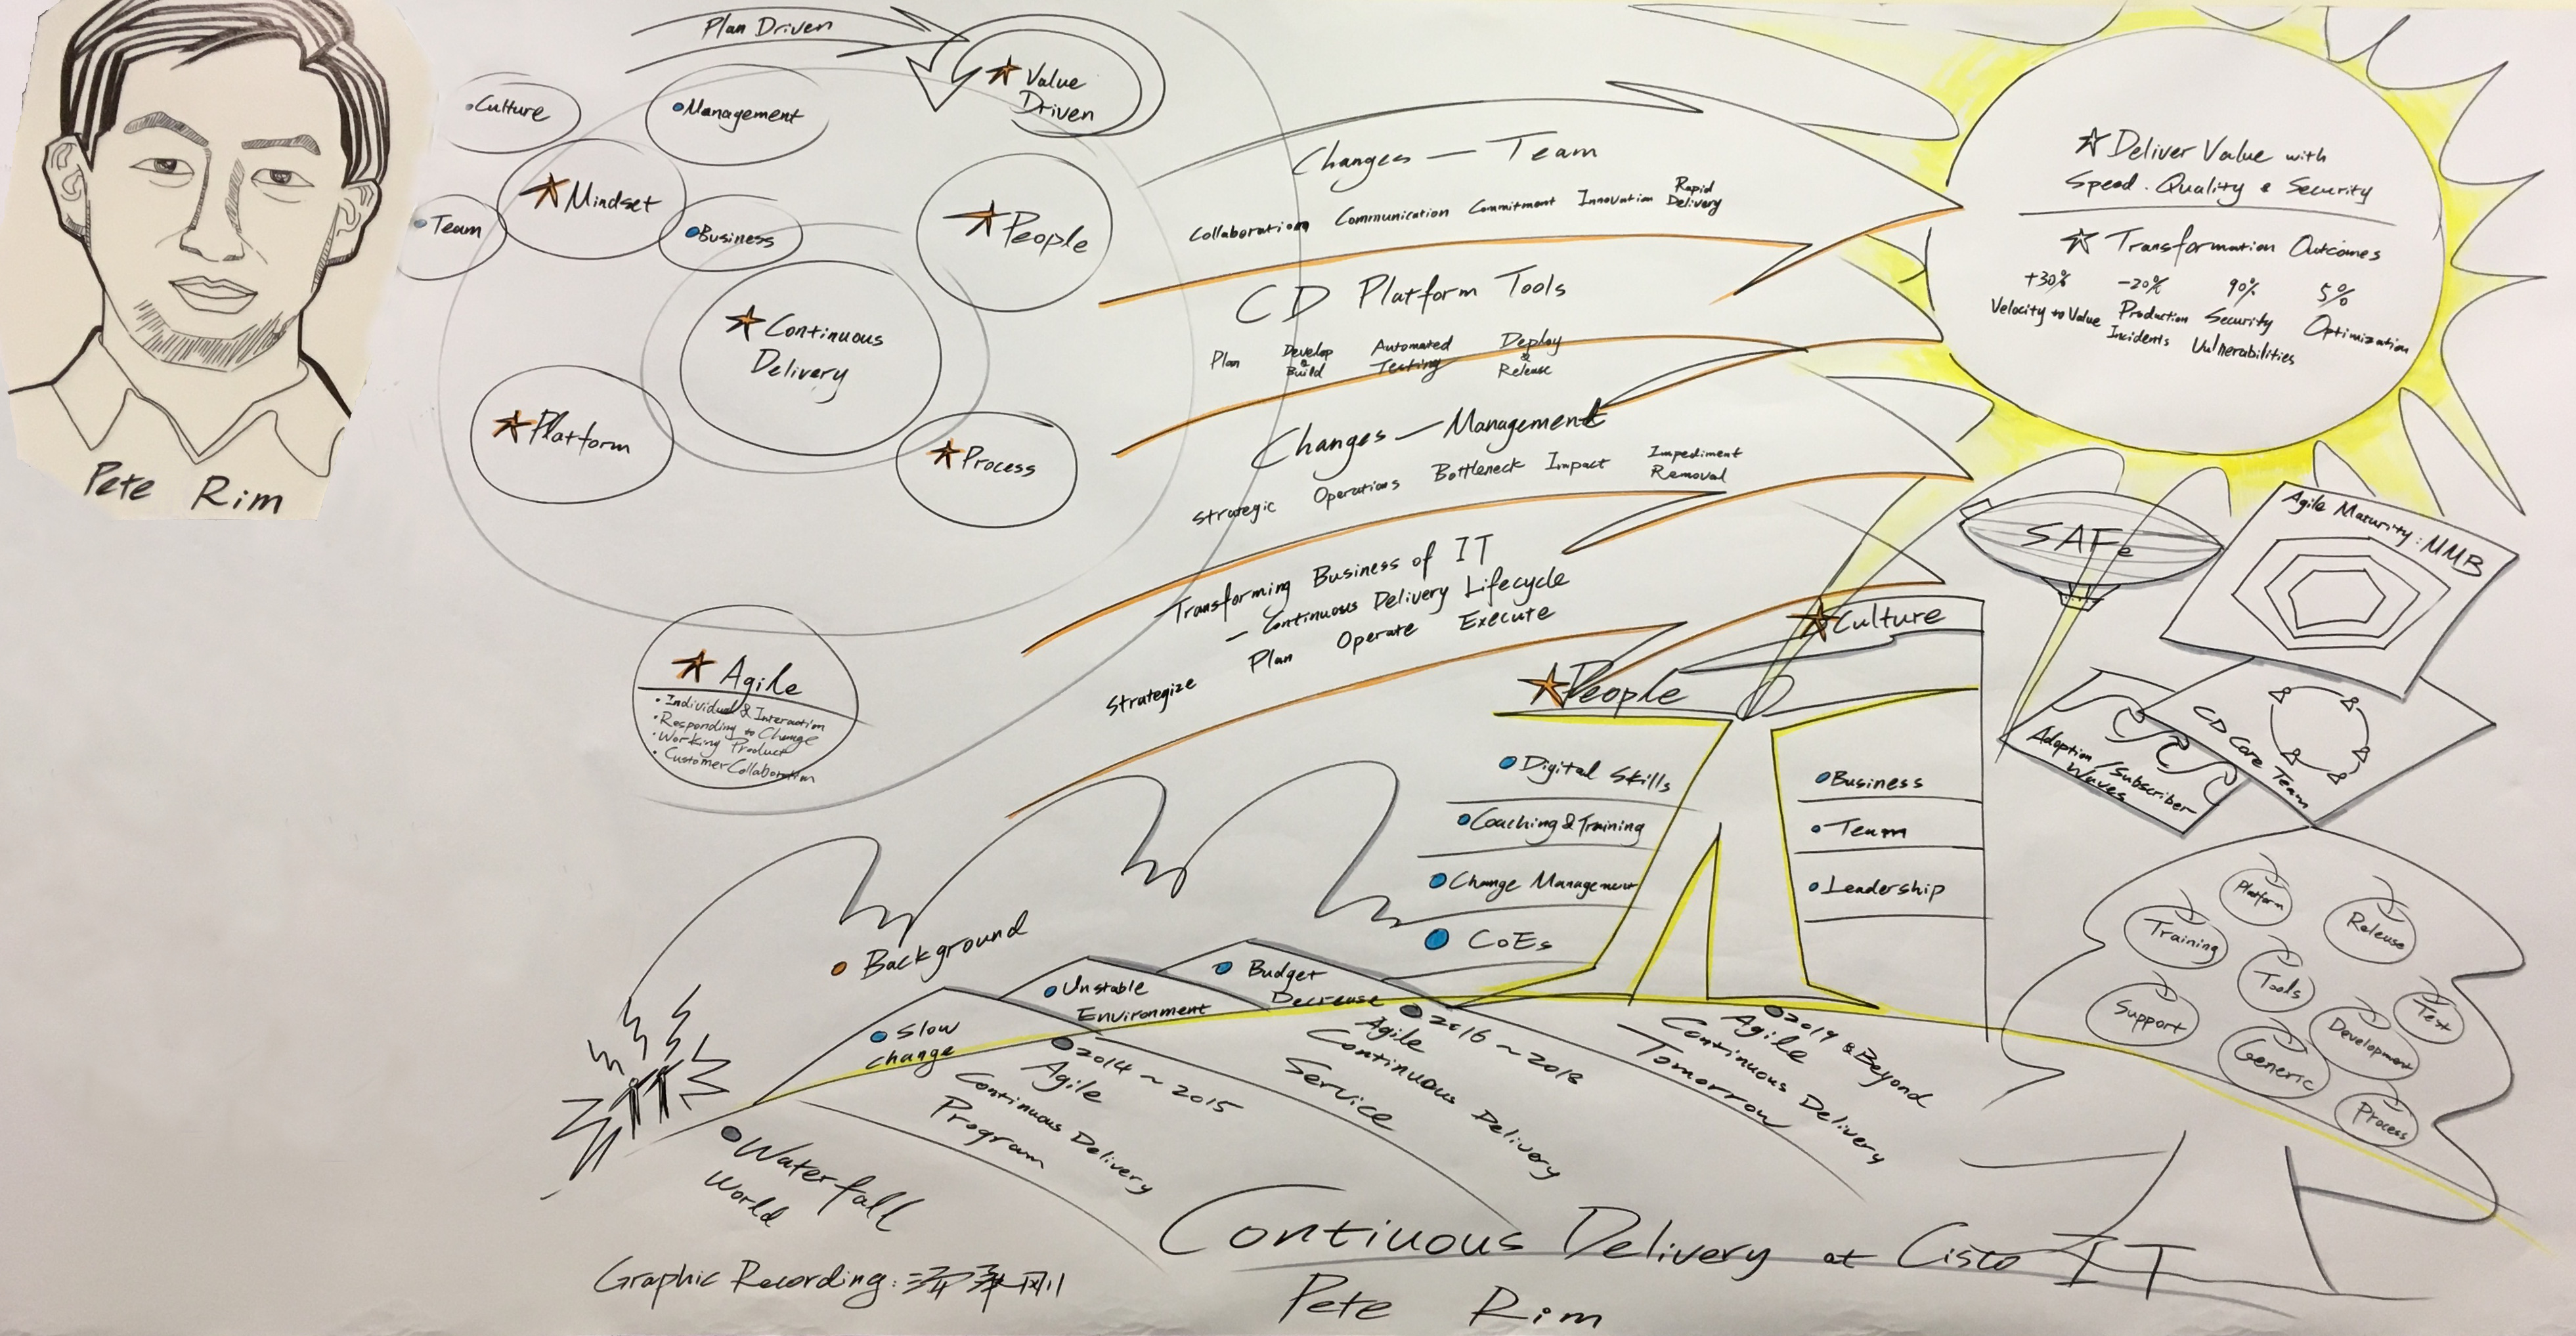 Pete Rim
Plan Driven
Value
Driven
Culture
Management
Mindset
Team
Business
People
Continuous
Delivery
Platform
Process
Agile
• Individual & Interaction
• Responding to Change
• Working Product
• Customer Collaboration
Changes — Team
Collaboration Communication Commitment Innovation Rapid
Delivery
CD Platform Tools
Plan
Develop
&
Build
Automated
Testing
Deploy
&
Release
Changes — Management
Strategic Operations Bottleneck Impact
Impediment
Removal
Transforming Business of IT
— Continuous Delivery Lifecycle
Strategize Plan Operate Execute
Deliver Value with
Speed. Quality & Security
Transformation Outcomes
+30%
Velocity to Value
-20%
Production
Incidents
90%
Security
Vulnerabilities
5%
Optimization
SAFe
Agile Maturity: MMB
CD Core Team
Adoption/Subscriber
Waves
Culture
Business
Team
Leadership
People
Digital Skills
Coaching & Training
Change Management
CoEs
Platform
Release
Training
Tools
Test
Support
Development
Generic
Process
Background
Slow
change
Unstable
Environment
Budget
Decrease
Waterfall
World
2014 ~ 2015
Agile
Continuous Delivery
Program
2016 ~ 2018
Agile
Continuous Delivery
Service
2019 & Beyond
Agile
Continuous Delivery
Tomorrow
Contiuous Delivery at Cisco IT
Pete Rim
Graphic Recording: